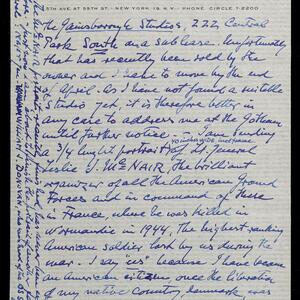 5TH AVE AT 55TH ST · NEW YORK 19, N.Y. · PHONE CIRCLE 7-2200
the Gainsborough Studios, 222 Central
Park South on a sublease. Unfortunately
that has recently been sold by the
owner and I have to move by the end
of April. As I have not found a suitable
Studio yet, it is therefore better in
any case to address me at the Gotham
until further notice. — I am sending
you in this wide mat frame
a 3/4 length portrait of Lt. General
Leslie J. McNAIR, the brilliant
organizer of all the American Ground
Forces and in command of these
in France, where he was killed in
Normandie in 1944, the highest ranking
American soldier lost by us during the
war. I say "us" because I have become
an American citizen, once the liberation
of my native country, Denmark, was